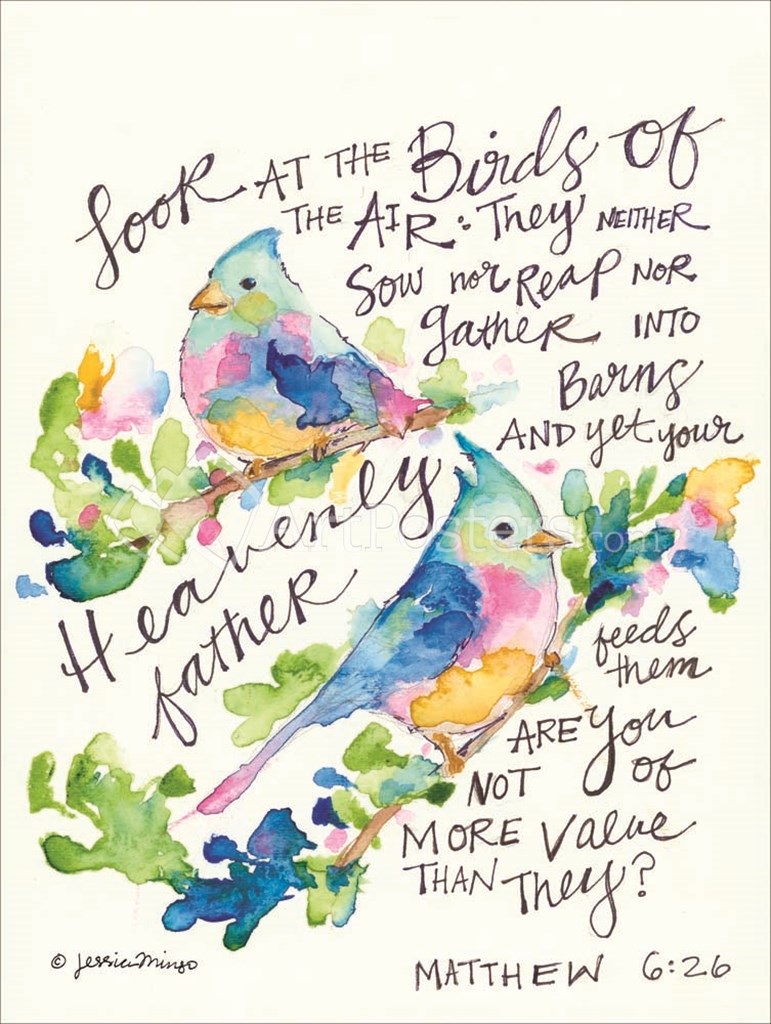 Look AT THE Birds of
THE AIR: They NEITHER
Sow nor REAP NOR
gather INTO
Barns
AND yet your
Heavenly
father
feeds
them
ARE you
NOT of
MORE value
THAN They?
MATTHEW 6:26
© Jessica Mingo
ArtPosters.com